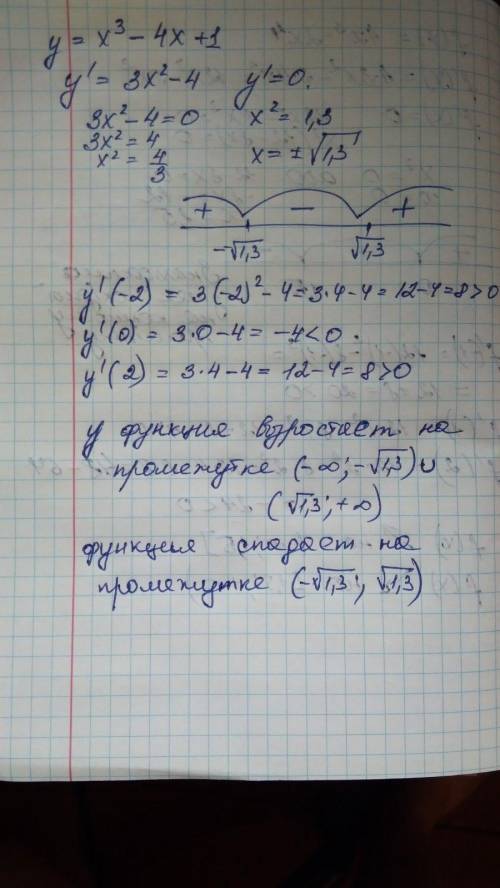 y = x³ - 4x + 1
y' = 3x² - 4 y' = 0.
3x² - 4 = 0 x² = 1,3
3x² = 4
x² = 4/3 x = ±√1,3
+ - +
-√1,3 √1,3
y'(-2) = 3(-2)² - 4 = 3·4 - 4 = 12 - 4 = 8 > 0
y'(0) = 3·0 - 4 = -4 < 0
y'(2) = 3·4 - 4 = 12 - 4 = 8 > 0
y функция взростает на
промежутке (-∞; -√1,3) ∪
(√1,3; +∞)
функция спадает на
промежутке (-√1,3; √1,3)